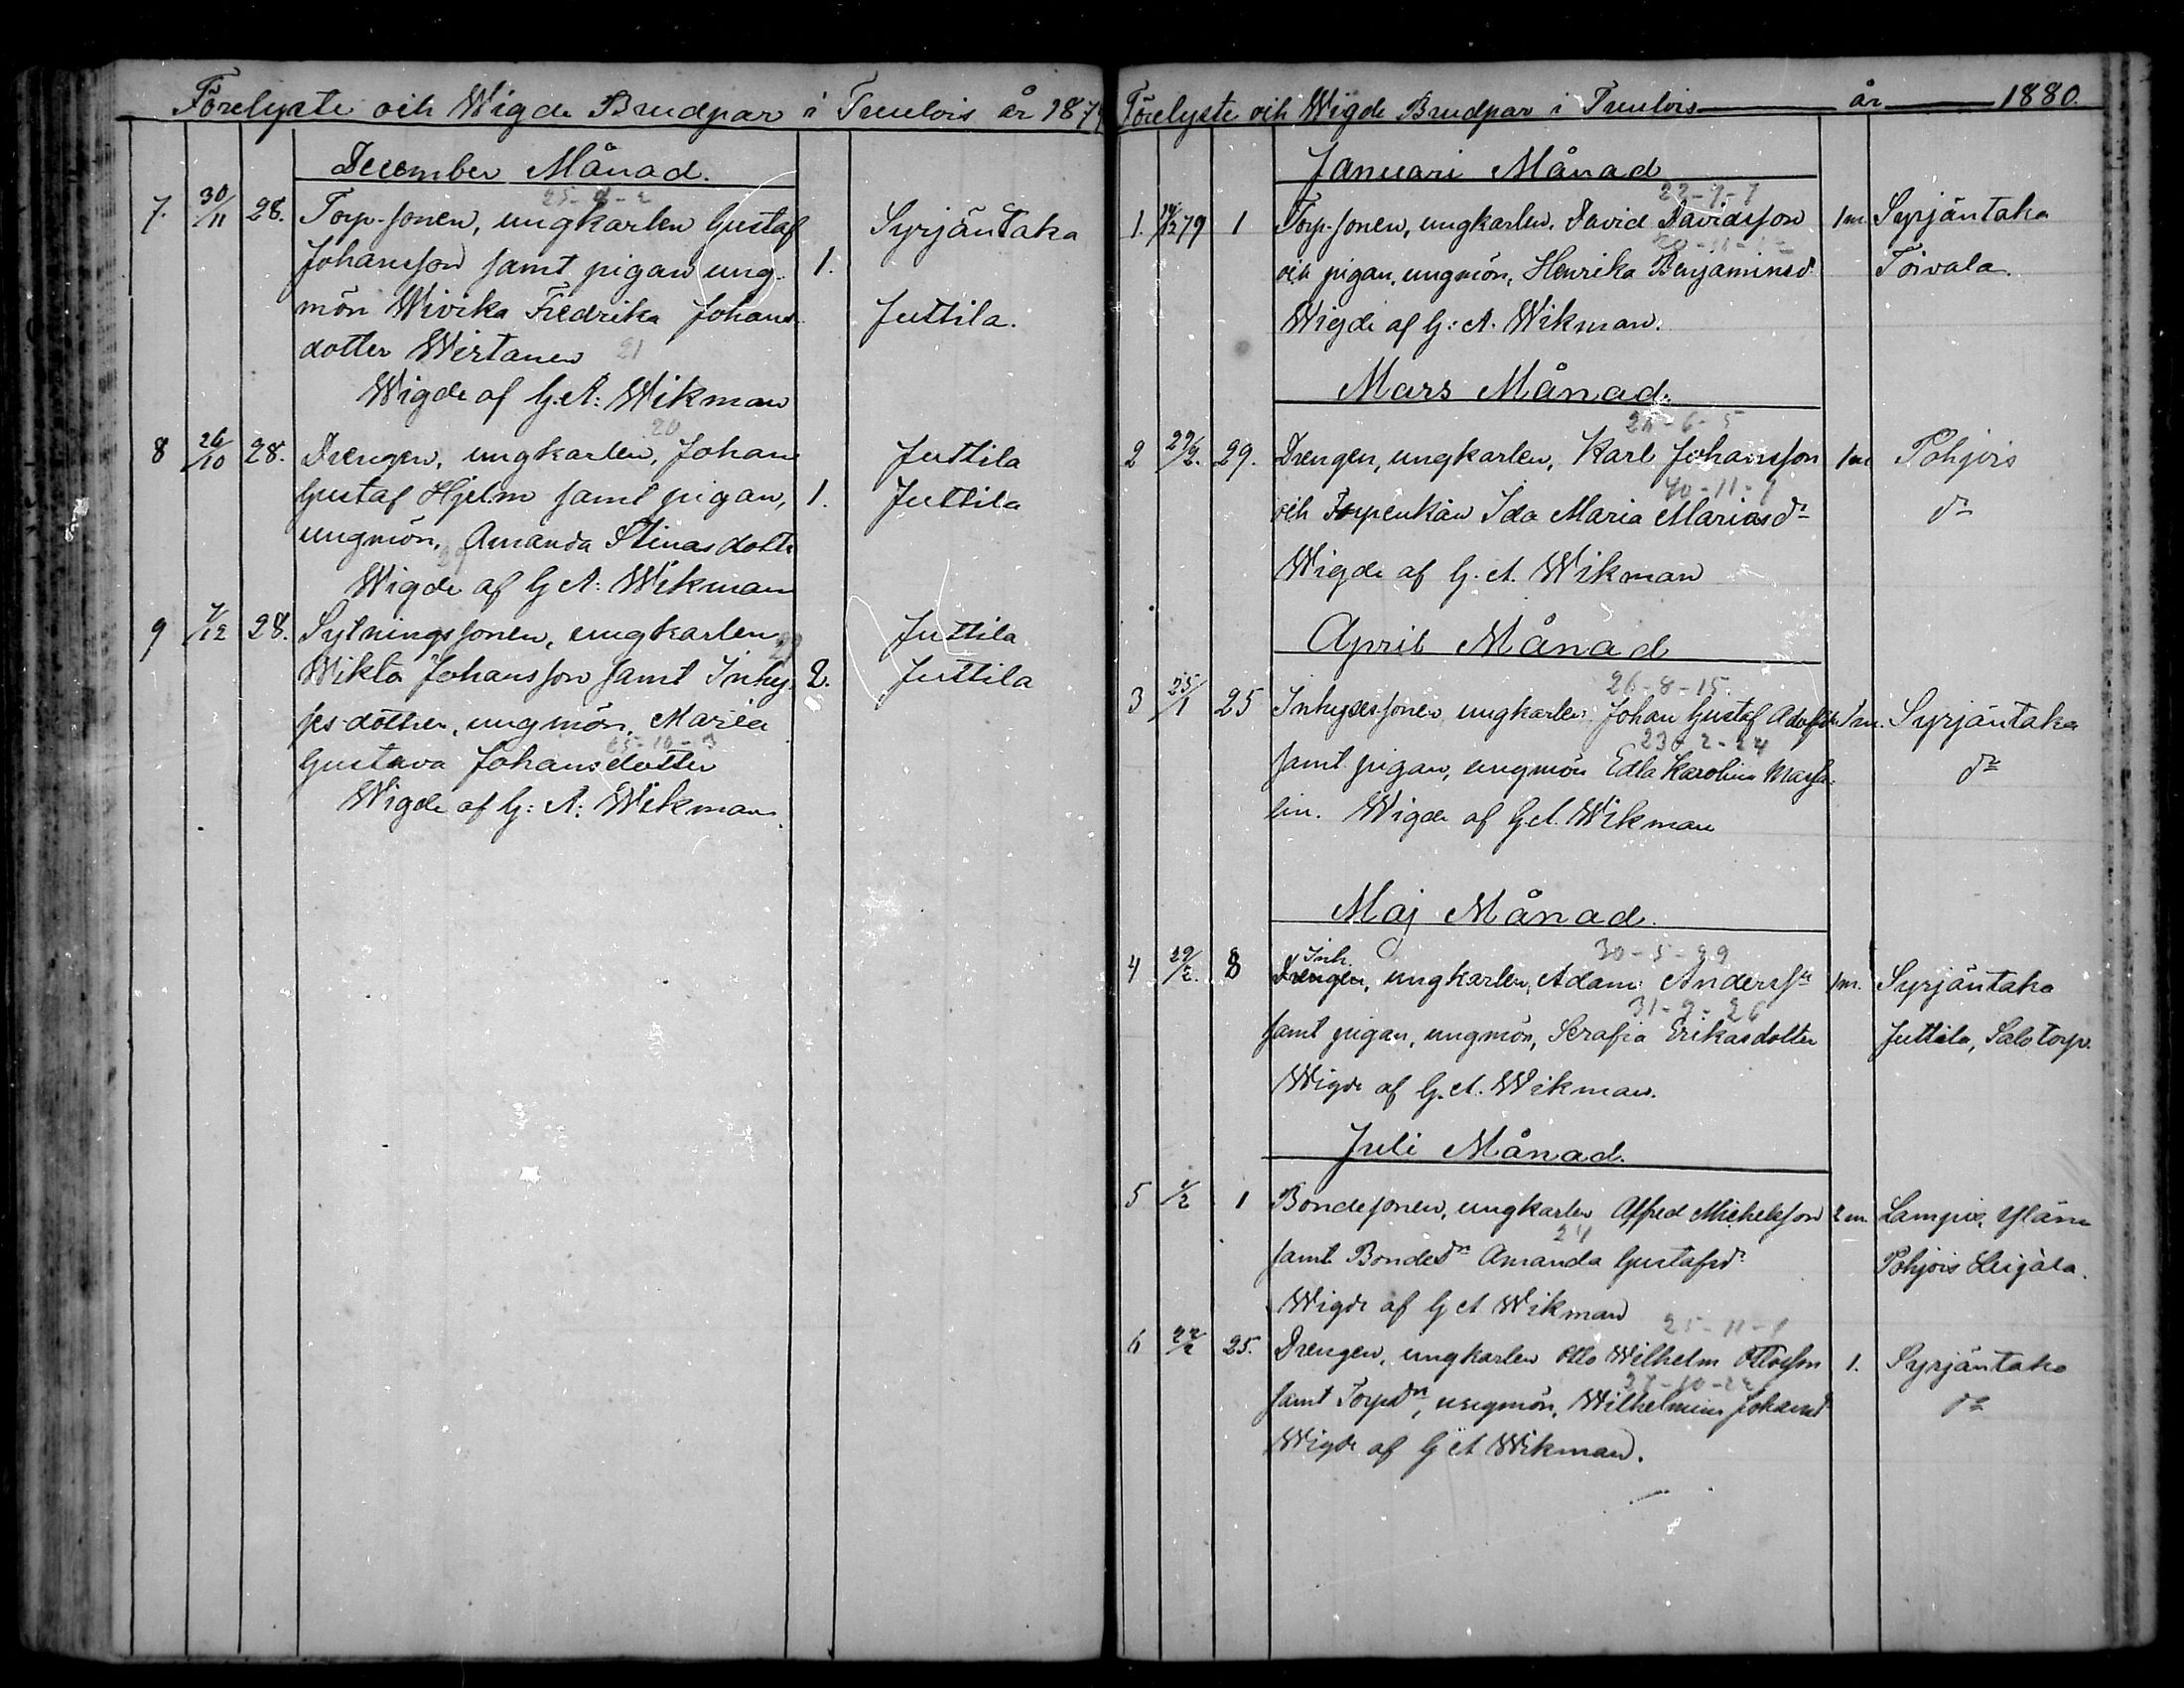 Förelyste och Wigde Brudpar i Tuulois år 1879
December Månad.
25-8-2
7. 30/11 28. Torp-sonen, ungkarlen Gustaf Syrjäntaka
Johansson samt pigan ung- 1.
mön Wivika Fredrika Johans- Juttila.
dotter Wirtanen 21
Wigde af G. A: Wikman
20
8 26/10 28. Drengen, ungkarlen, Johan Juttila
Gustaf Hjelm samt pigan, 1. Juttila
ungmön, Amanda Stinasdotter
Wigde af G A: Wikman
9 7/12 28. Sytningssonen, ungkarlen Juttila
Wikto Johansson samt Inhy- 2. Juttila
ses-dotter, ungmön, Maria
25-10-3
Gustava Johansdotter
Wigde af G: A: Wikman.
Förelyste och Wigde Brudpar i Tuulois år 1880.
Januari Månad
22-7-7
1. 14/12 79 1 Torp-sonen, ungkarlen, David Davidsson 1m. Syrjäntaka
och pigan, ungmön, Henrika Benjaminsd. Toivala.
Wigde af G: A. Wikman.
Mars Månad.
24-6-5
2 29/2. 29. Drengen, ungkarlen, Karl Johansson 1m Pohjois
40-11-1
och Torpenkan Ida Maria Mariasdr do
Wigde af G. A. Wikman
April Månad
26-8-15.
3 25/1 25 Inhysessonen ungkarlen Johan Gustaf Adolfsson 1m. Syrjäntaka
23-2-24
samt pigan, ungmön Edla Karolina Massa- do
lin. Wigde af G. A. Wikman
Maj Månad.
Inh. 30-5-29
4 29/2. 8 Drengen, ungkarlen, Adam Anderssn 1m. Syrjäntaka
31-2-26
samt pigan, ungmön, Serafia Eriksdotter Juttila, Salo torp.
Wigde af G. A. Wikman.
Juli Månad.
5 1/2 1 Bondesonen, ungkarlen Alfred Michelsson 2m. Lampis, Yläne
24
samt Bondedn Amanda Gustafsdr Pohjois Leijala.
Wigde af G A Wikman
25-11-1
6 22/2 25. Drengen, ungkarlen Otto Wilhelm Ottosson 1. Syrjäntaka
27-10-22
samt Torpdn, ungmön, Wilhelmina Johansd do
Wigde af G A Wikman.